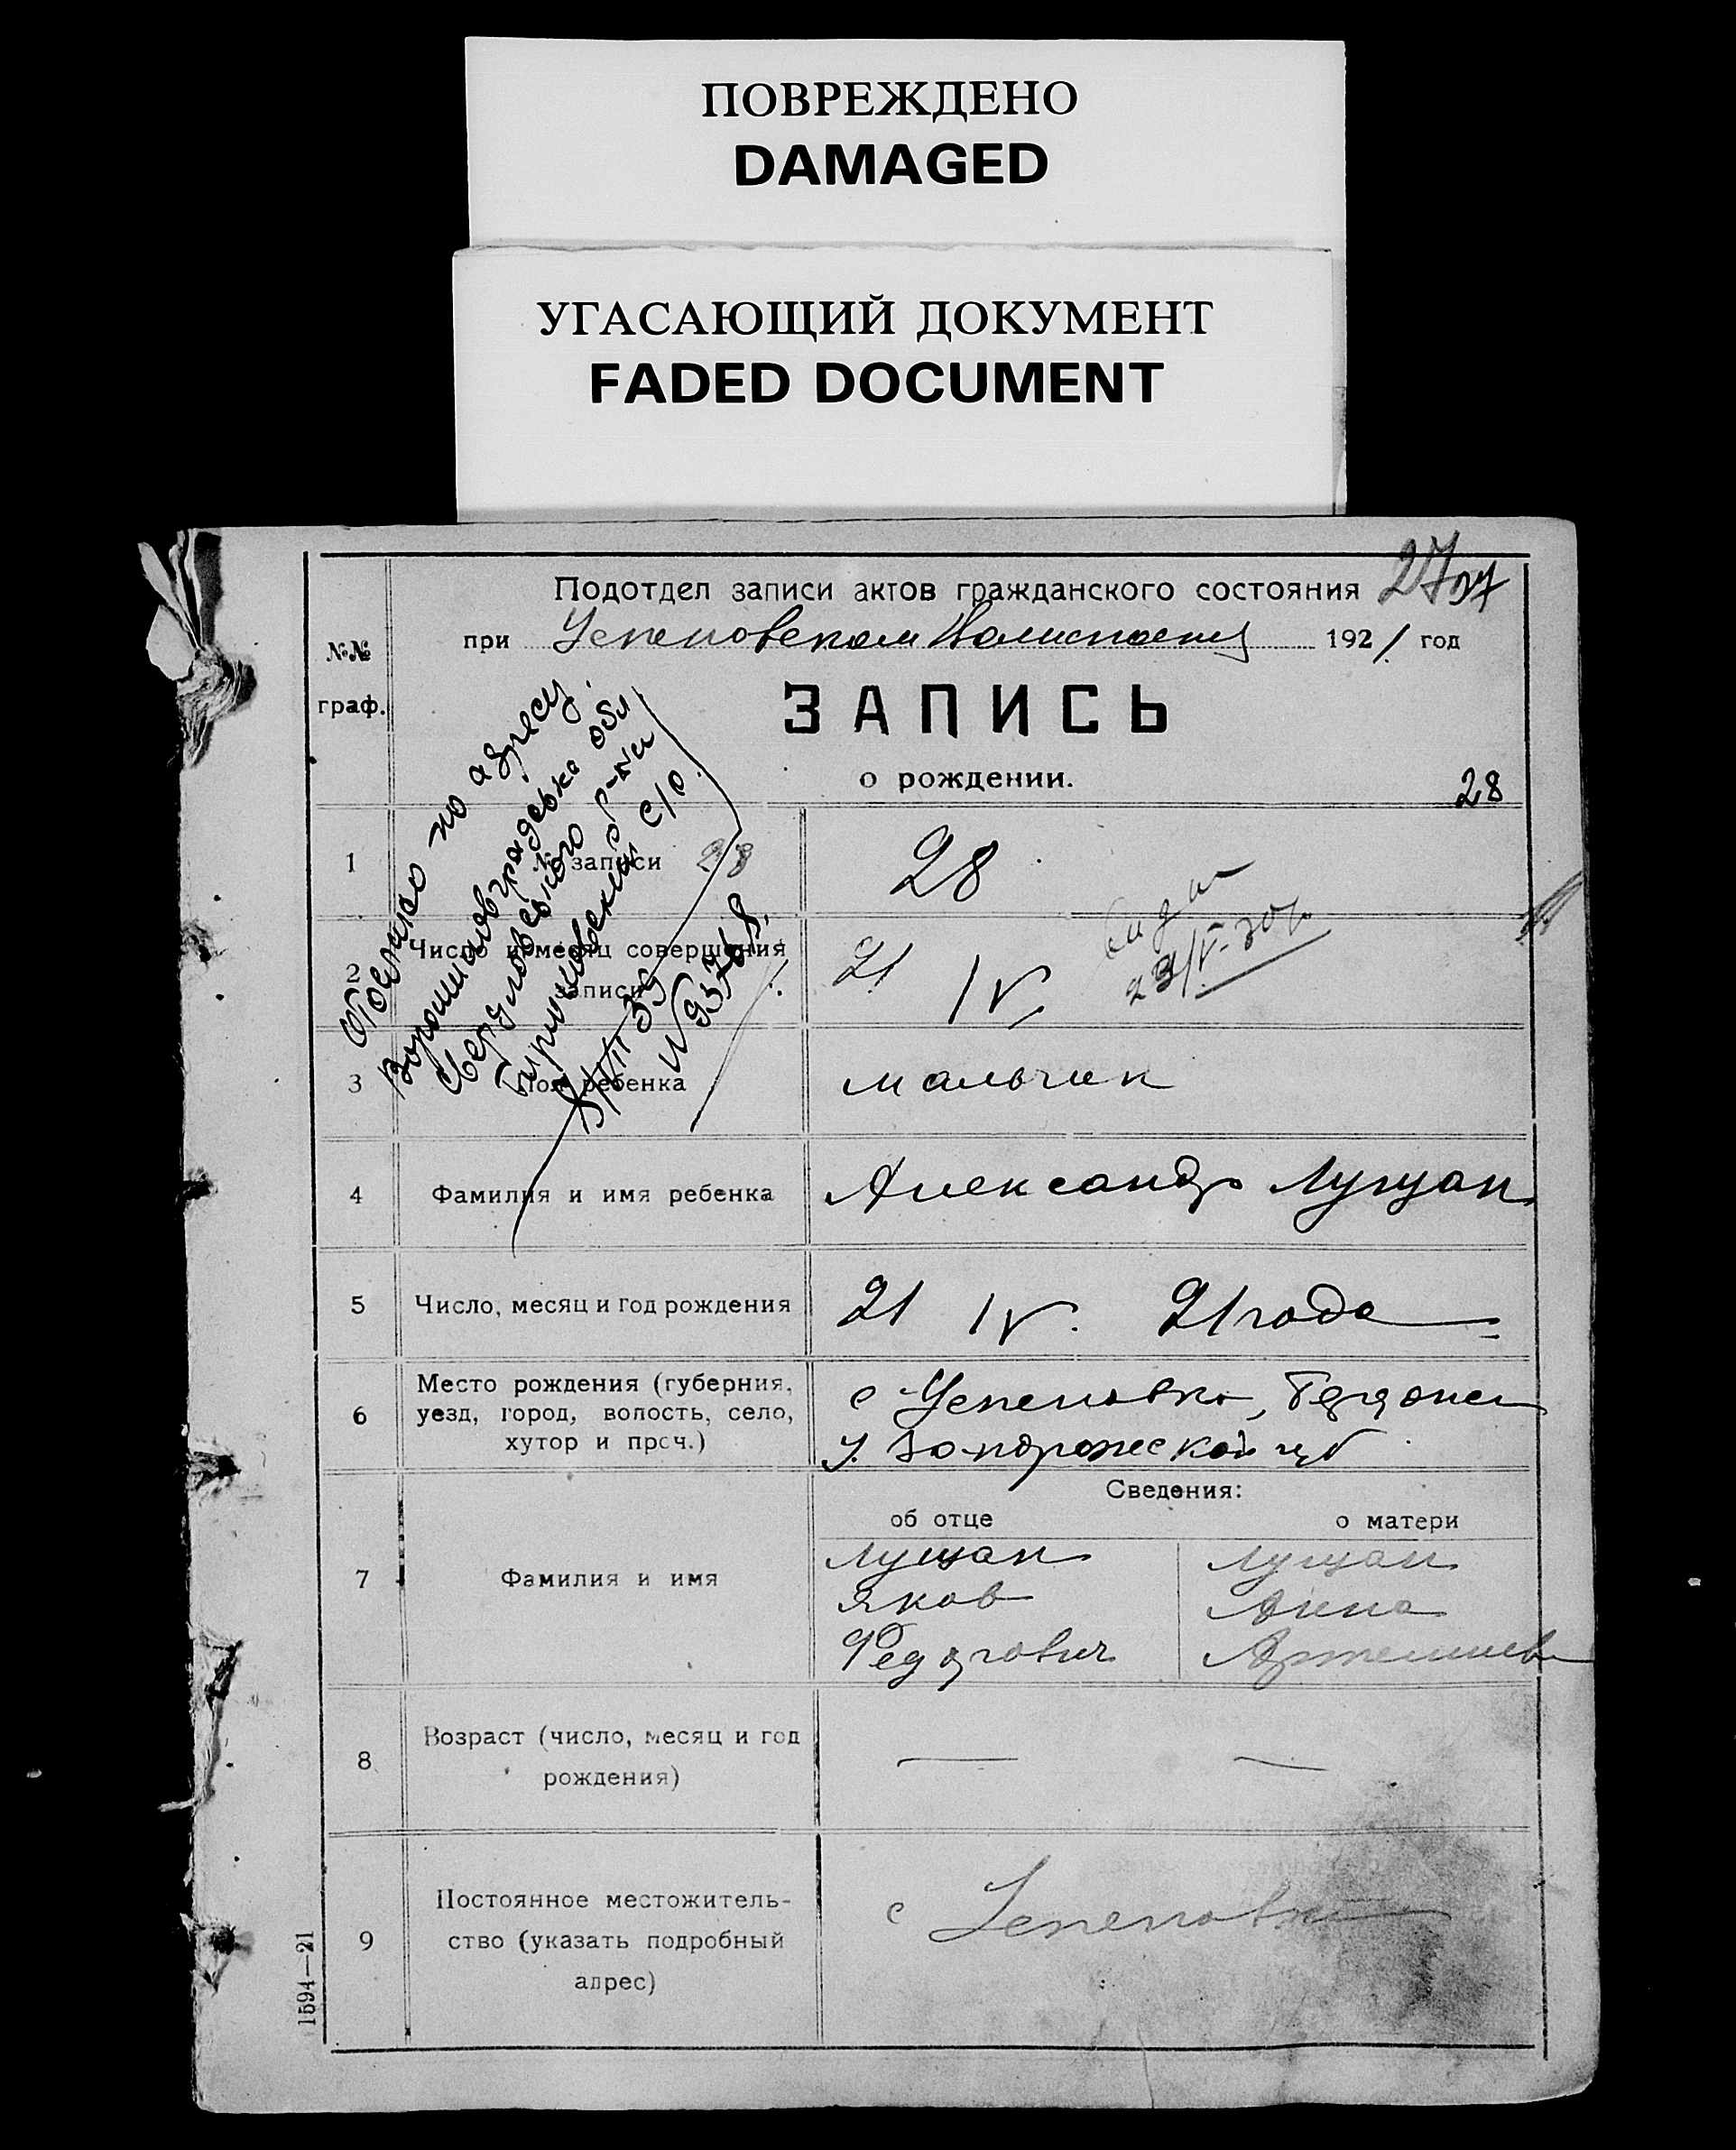 ПОВРЕЖДЕНО
DAMAGED
УГАСАЮЩИЙ ДОКУМЕНТ
FADED DOCUMENT
27
Подотдел записи актов гражданского состояния
при Успеновском 1921 год
№№
граф.
ЗАПИСЬ
о рождении.
28
выслано по адресу:
Ворошиловградська обл
Свердловського р-на
Бирюковский с/с
1 № записи 28 28
2 Число и месяц совершения
записи 21 IV
3 Пол ребенка мальчик
4 Фамилия и имя ребенка Александр Лущан
5 Число, месяц и год рождения 21 IV. 21 года
6 Место рождения (губерния,
уезд, город, волость, село,
хутор и проч.)
с Успеновка, Бердянск
у. Запорожской губ
Сведения:
об отце о матери
7 Фамилия и имя
Лущан Лущан
Яков Анна
Федорович
8 Возраст (число, месяц и год
рождения) — —
9 Постоянное местожитель-
ство (указать подробный
адрес)
с Успеновка
1594—21